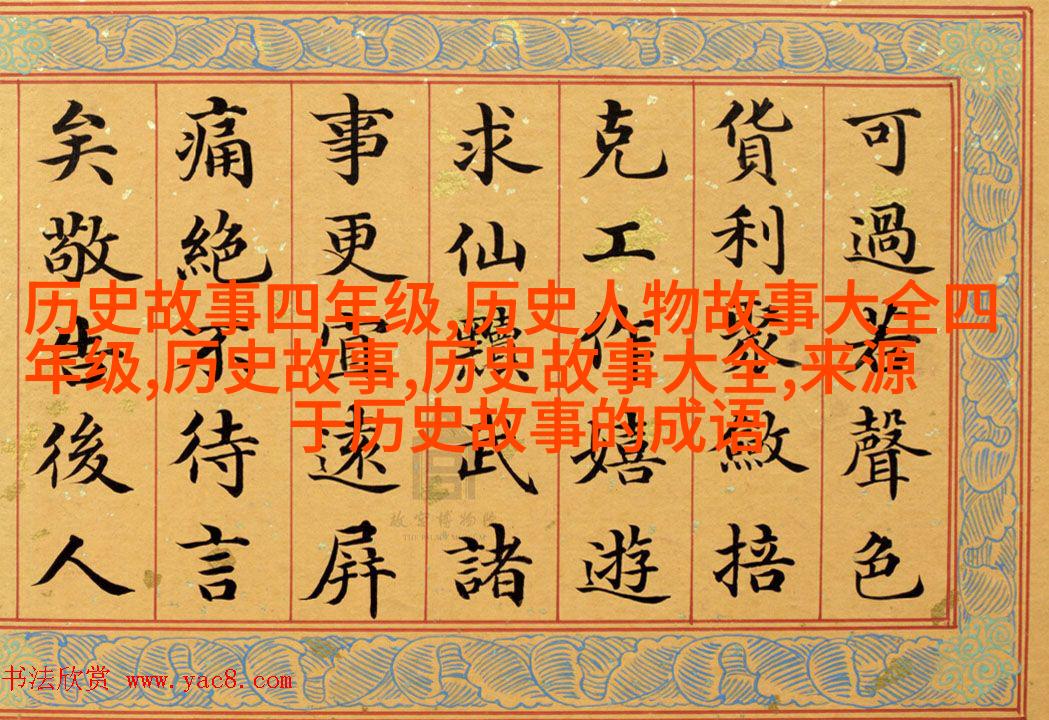 可過若聲色
貨利聚斂掊
克工作嬉遊
求仙黷武諸
事更宜遠屏
痛絕不待言
矣敬告後人
历史故事四年级,历史人物故事大全四
年级,历史故事,历史故事大全,来源
于历史故事的成语
故宫博物院
THE PALACE MUSEUM
书法欣赏 www.yac8.com